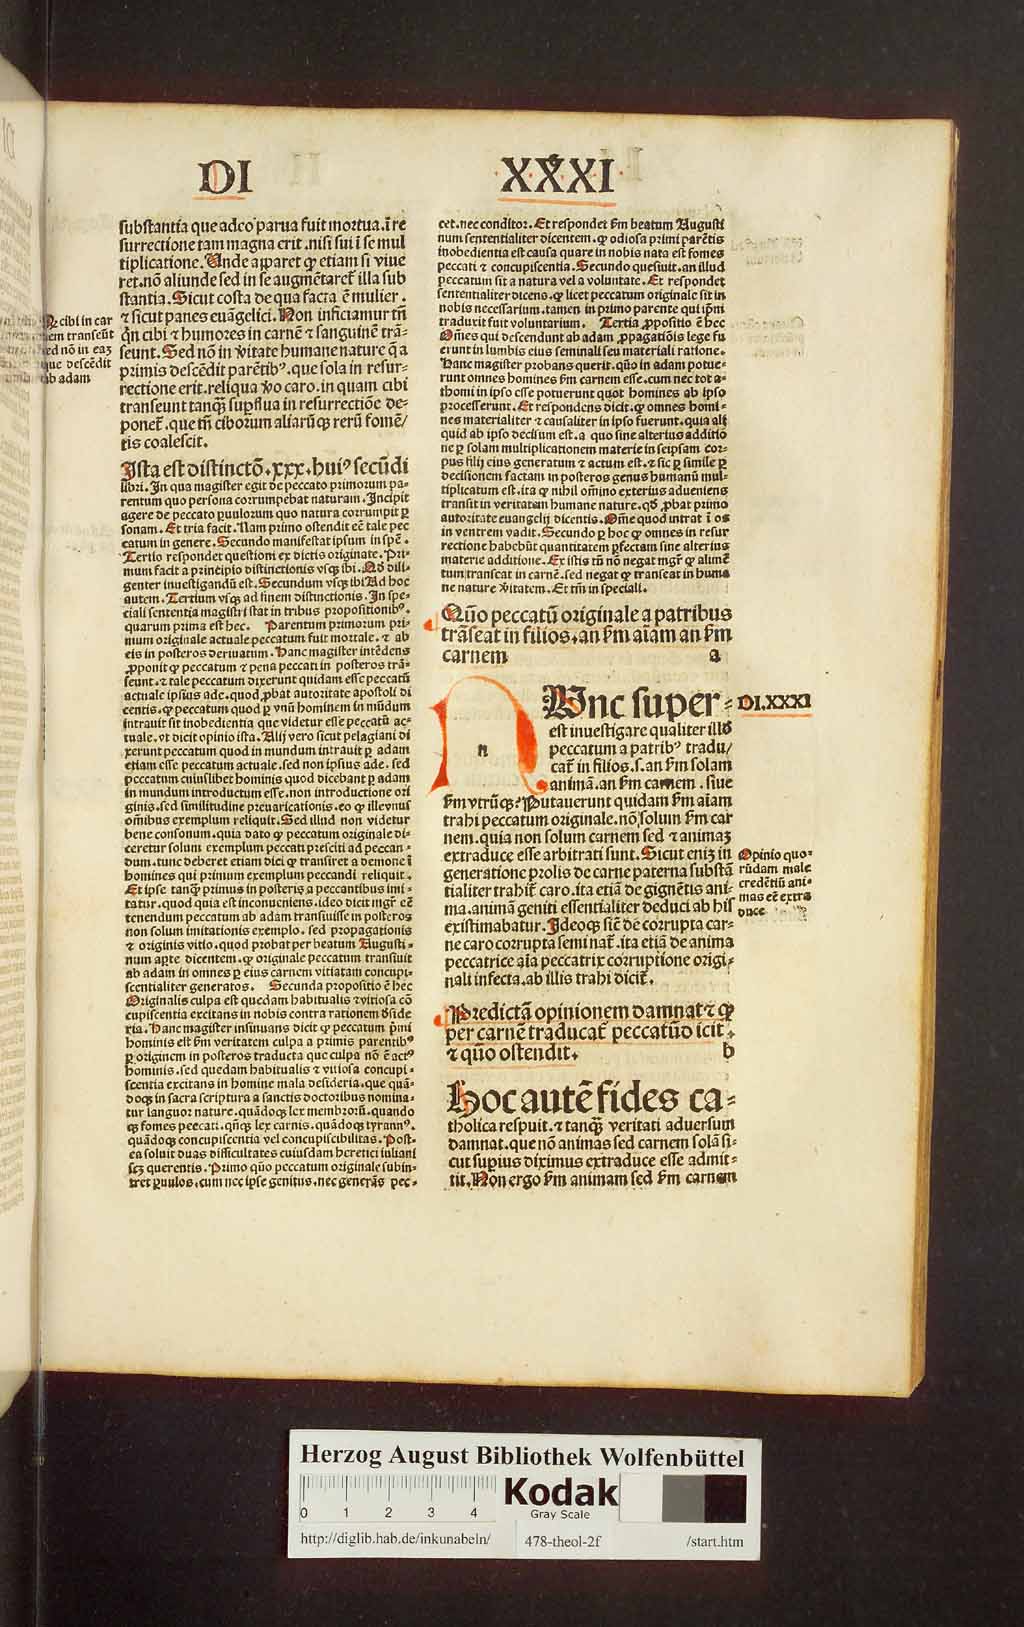 DI
XXXI
substantia que adeo parua fuit mortua. ī re
surrectione tam magna erit. nisi sui ī se mul
tiplicatione. Unde apparet ꝙ etiam si viue
ret. nō aliunde sed in se augmētaret᷑ illa sub
stantia. Sicut costa de qua facta ē mulier.
⁊ sicut panes euāgelici. Non inficiamur tn̄
qn̄ cibi ⁊ humores in carnē ⁊ sanguinē trā⸗
seunt. Sed nō in v̄itate humane nature q̄ a
primis descēdit parētibꝰ. que sola in resur⸗
rectione erit. reliqua v̄o caro. in quam cibi
transeunt tanqȝ supflua in resurrectiōe de⸗
ponet᷑. que tn̄ ciborum aliarūqȝ rerū fomē/
tis coalescit.
Ꝙ cibi in car
nem transeūt
sed nō in eaȝ
que descēdit
ab adam
Ista est distinctō.xxx.huiꝰ secūdi
libri. In qua magister egit de peccato primorum pa⸗
rentum quo persona corrumpebat naturam. Incipit
agere de peccato ꝑuulorum quo natura corrumpit ꝑ
sonam. Et tria facit. Nam primo ostendit eē tale pec
catum in genere. Secundo manifestat ipsum in spē.
Tertio respondet questioni ex dictis originate. Pri⸗
mum facit a principio distinctionis vsqȝ ibi. Ad dili⸗
genter inuestigandū est. Secundum vsqȝ ibi Ad hoc
autem. Tertium vsqȝ ad finem distinctionis. In spe⸗
ciali sententia magistri stat in tribus propositionibꝰ.
quarum prima est hec. Parentum primorum pri⸗
mum originale actuale peccatum fuit mortale. ⁊ ab
eis in posteros deriuatum. Hanc magister intēdens
ꝓponit ꝙ peccatum ⁊ pena peccati in posteros trā⸗
seunt. ⁊ tale peccatum dixerunt quidam esse peccatū
actuale ipsius ade. quod ꝓbat autoritate apostoli di
centis. ꝙ peccatum quod ꝑ vnū hominem in mūdum
intrauit sit inobedientia que videtur esse peccatū ac⸗
tuale. vt dicit opinio ista. Alij vero sicut pelagiani di
xerunt peccatum quod in mundum intrauit ꝑ adam
etiam esse peccatum actuale. sed non ipsius ade. sed
peccatum cuiuslibet hominis quod dicebant ꝑ adam
in mundum introductum esse. non introductione ori
ginis. sed similitudine preuaricationis. eo ꝙ ille vnus
oībus exemplum reliquit. Sed illud non videtur
bene consonum. quia dato ꝙ peccatum originale di⸗
ceretur solum exemplum peccati presciti ad peccan⸗
dum. tunc deberet etiam dici ꝙ transiret a demone ī
homines qui primum exemplum peccandi reliquit.
Et ipse tanqȝ primus in posteris a peccantibus imi⸗
tatur. quod quia est inconueniens. ideo dicit mgr̄ eē
tenendum peccatum ab adam transiuisse in posteros
non solum imitationis exemplo. sed propagationis
⁊ originis vitio. quod probat per beatum Augusti⸗
num aꝑte dicentem. ꝙ originale peccatum transiuit
ab adam in omnes ꝑ eius carnem vitiatam concupi⸗
scentialiter generatos. Secunda propositio ē hec
Originalis culpa est quedam habitualis ⁊ vitiosa cō
cupiscentia excitans in nobis contra rationem d̄side
ria. Hanc magister insinuans dicit ꝙ peccatum p̄mi
hominis est fm̄ veritatem culpa a primis parentibꝰ
ꝑ originem in posteros traducta que culpa nō ē actꝰ
hominis. sed quedam habitualis ⁊ vitiosa concupi⸗
scentia excitans in homine mala desideria. que quā⸗
doqȝ in sacra scriptura a sanctis doctoribus nomina⸗
tur languor nature. quādoqȝ lex membrorū. quando
qȝ fomes peccati. qn̄qȝ lex carnis. quādoqȝ tyrannꝰ.
quādoqȝ concupiscentia vel concupiscibilitas. Post⸗
ea soluit duas difficultates cuiusdam heretici iuliani
scȝ querentis. Primo quō peccatum originale subin⸗
tret ꝑuulos. cum nec ipse genitus. nec generās pec⸗
cet. nec conditor. Et respondet fm̄ beatum Augusti
num sententialiter dicentem. ꝙ odiosa primi parētis
inobedientia est causa quare in nobis nata est fomes
peccati ⁊ concupiscentia. Secundo quesiuit. an illud
peccatum sit a natura vel a voluntate. Et respondet
sententialiter dicens. ꝙ licet peccatum originale sit in
nobis necessarium. tamen in primo parente qui ip̄m
traduxit fuit voluntarium. Tertia ꝓpositio ē hec
Omes qui descendunt ab adam ꝓpagatiōis lege fu
erunt in lumbis eius seminali seu materiali ratione.
Hanc magister probans querit. quō in adam potue⸗
runt omnes homines fm̄ carnem esse. cum nec tot a⸗
thomi in ipso esse potuerunt quot homines ab ipso
processerunt. Et respondens dicit. ꝙ omnes homi⸗
nes materialiter ⁊ causaliter in ipso fuerunt. quia ali
quid ab ipso decisum est. a quo sine alterius additiō
ne ꝑ solam multiplicationem materie in seipsam cor⸗
pus filij eius generatum ⁊ actum est. ⁊ sic ꝑ simile ꝑ
decisionem factam in posteros genus humanū mul⸗
tiplicatum est. ita ꝙ nihil om̄ino exterius adueniens
transit in veritatem humane nature. qd̄ ꝓbat primo
autoritate euangelij dicentis. Om̄e quod intrat ī os
in ventrem vadit. Secundo ꝑ hoc ꝙ omnes in resur
rectione habebūt quantitatem ꝑfectam sine alterius
materie additione. Ex istis tn̄ nō negat mgr̄ ꝙ alimē
tum transeat in carnē. sed negat ꝙ transeat in huma
ne nature v̄itatem. Et tm̄ in speciali.
Quō peccatū originale a patribus
trāseat in filios. an fm̄ aiam an fm̄
carnem a
n
NUnc super⸗
DI.XXXI
est inuestigare qualiter illd̄
peccatum a patribꝰ tradu/
cat᷑ in filios. s. an fm̄ solam
animā. an fm̄ carnem. siue
fm̄ vtrūqȝ. Putauerunt quidam fm̄ aīam
trahi peccatum originale. nō solum fm̄ car
nem. quia non solum carnem sed ⁊ animaȝ
extraduce esse arbitrati sunt. Sicut eniȝ in
generatione prolis de carne paterna substā
tialiter trahit᷑ caro. ita etiā de gignētis ani⸗
ma. animā geniti essentialiter deduci ab his
existimabatur. Ideoqȝ sic̄ de corrupta car⸗
ne caro corrupta seminat᷑. ita etiā de anima
peccatrice aīa peccatrix corruptione origi⸗
nali infecta. ab illis trahi dicit᷑.
Opinio quo⸗
rūdam male
credētiū ani⸗
mas eē extra
duce
Predictā opinionem damnat ⁊ ꝙ
per carnē traducat᷑ peccatū d icit.
⁊ quō ostendit. b
Hoc autē fides ca⸗
tholica respuit. ⁊ tanqȝ veritati aduersum
damnat. que nō animas sed carnem solā si⸗
cut supius diximus extraduce esse admit⸗
tit. Non ergo fm̄ animam sed fm̄ carnem
Herzog August Bibliothek Wolfenbüttel
0 1 2 3 4
Kodak
Gray Scale
http://diglib.hab.de/inkunabeln/ 478-theol-2f /start.htm